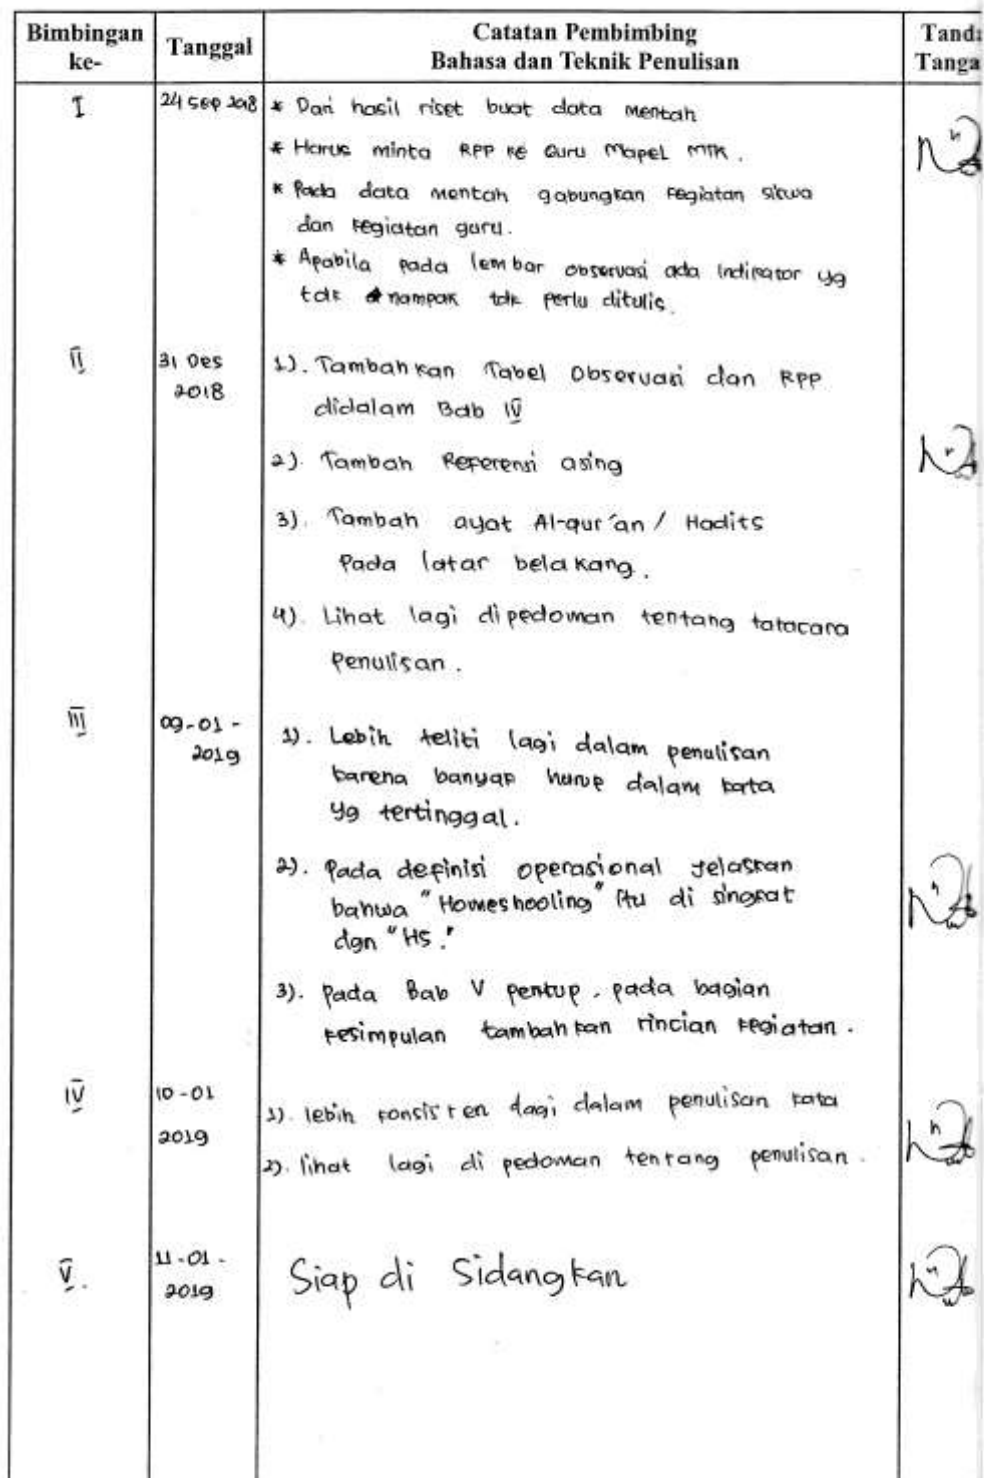 Bimbingan ke- Tanggal Catatan Pembimbing Bahasa dan Teknik Penulisan Tanda Tanga
I 24 Sep 2018 * Dari hasil riset buat data mentah
* Harus minta RPP ke Guru Mapel MTK.
* Pada data mentah gabungkan kegiatan siswa
dan kegiatan guru.
* Apabila pada lembar observasi ada indikator yg
tdk nampak tdk perlu ditulis.
II 31 Des 2018 1). Tambahkan Tabel Observasi dan RPP
didalam Bab IV
2). Tambah Referensi asing
3). Tambah ayat Al-qur'an / Hadits
Pada latar belakang.
4). Lihat lagi dipedoman tentang tatacara
Penulisan.
III 09-01-2019 1). Lebih teliti lagi dalam penulisan
karena banyak huruf dalam kata
yg tertinggal.
2). Pada definisi operasional jelaskan
bahwa "Homeshooling" itu di singkat
dgn "HS."
3). Pada Bab V pentup. pada bagian
kesimpulan tambahkan rincian kegiatan.
IV 10-01 2019 1). lebih konsisten dagi dalam penulisan kata
2). lihat lagi di pedoman tentang penulisan.
V. 11-01-2019 Siap di Sidangkan